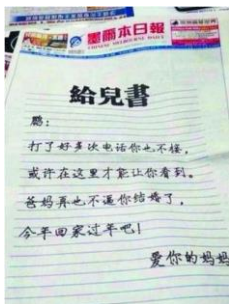 墨爾本日報
CHINESE MELBOURNE DAILY
給兒書
鹏:
打了好多次电话你也不接,
或许在这里才能让你看到。
爸妈再也不逼你结婚了,
今年回家过年吧!
爱你的妈妈